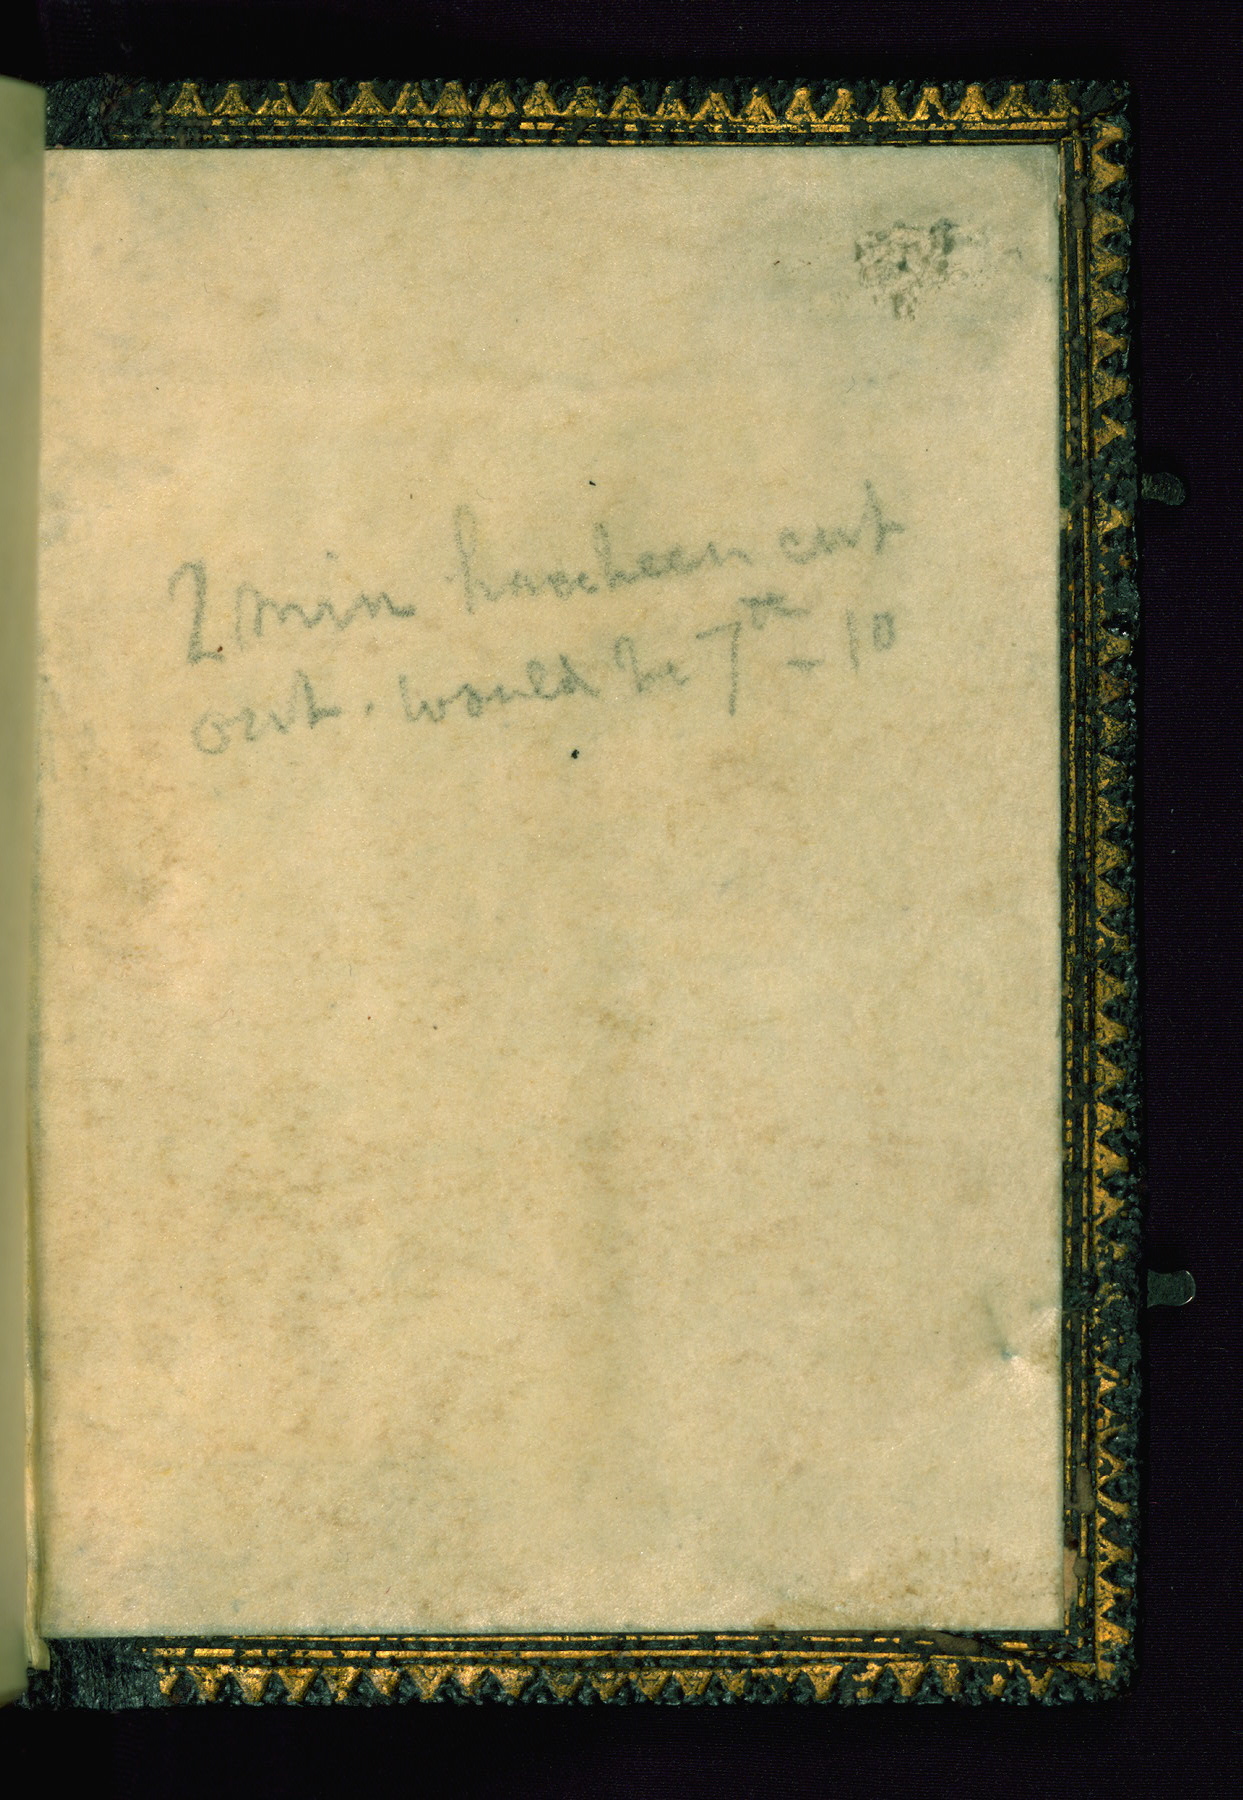 2 min have been cut
out. would be 7th - 10